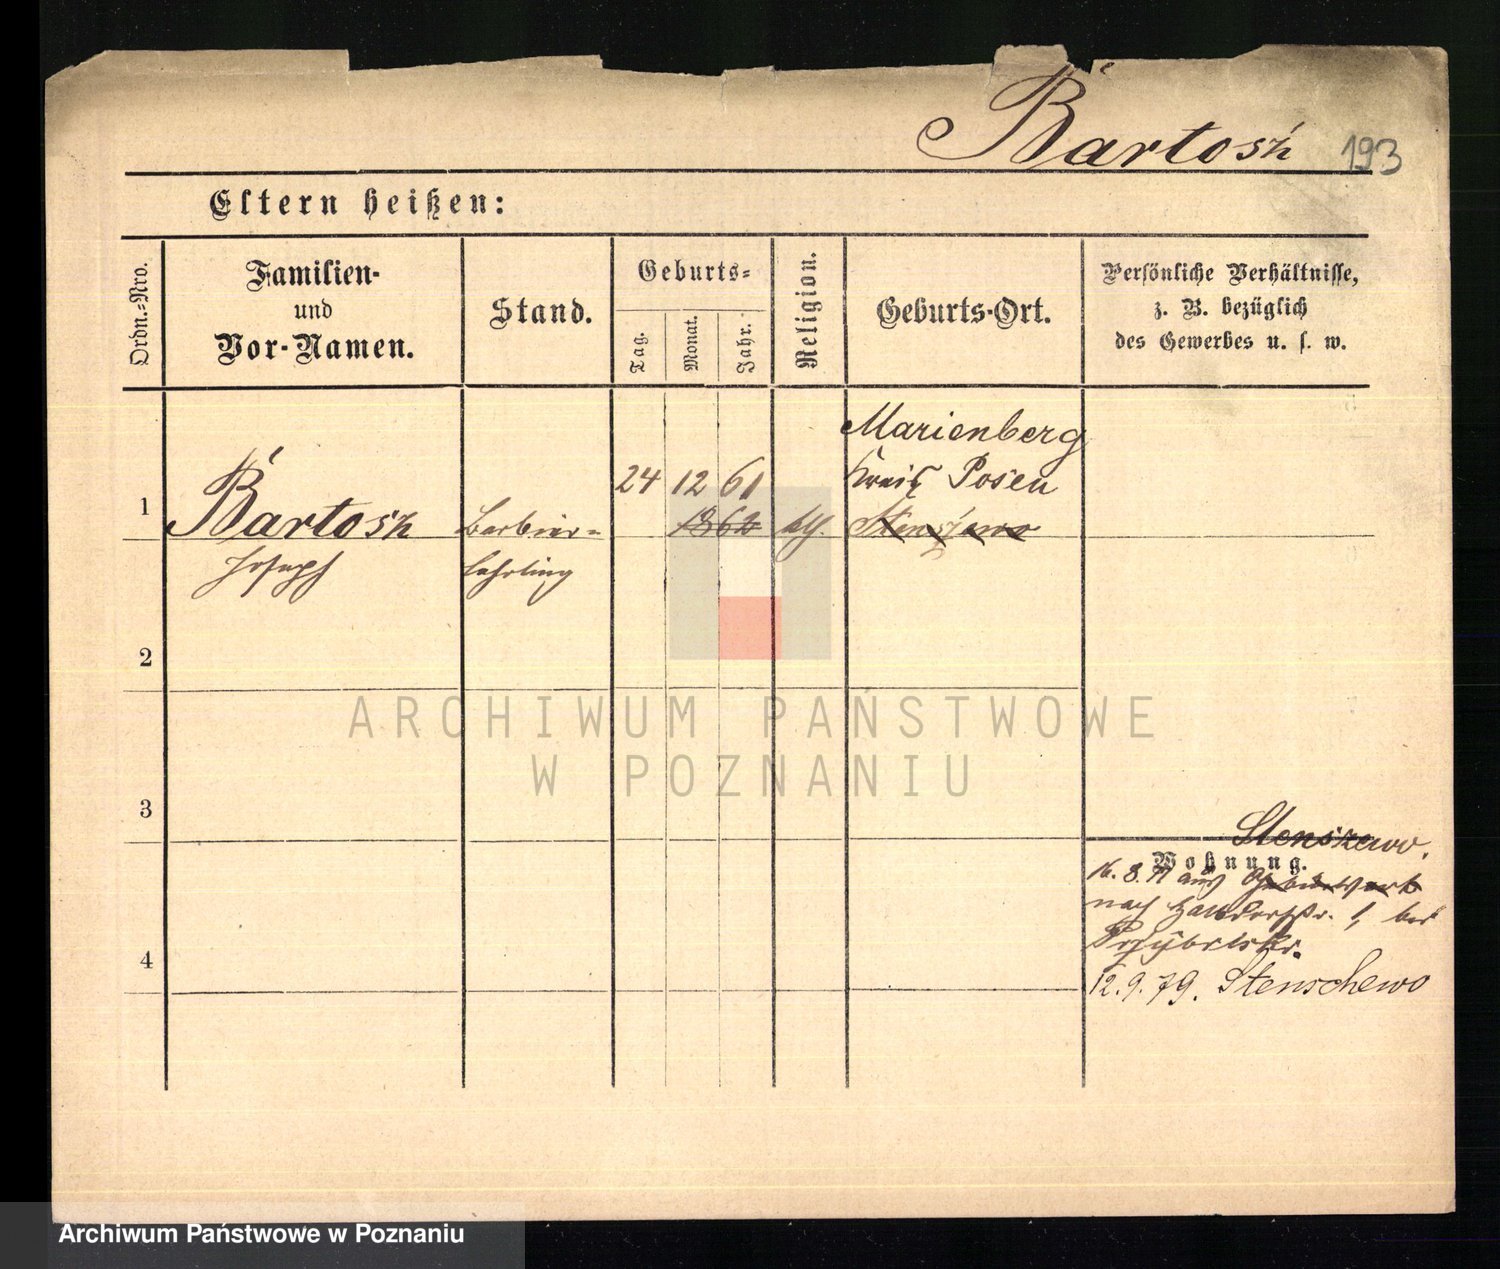 Bartosz 193
Eltern heißen:
Ordn.-Nro.
Familien-
und
Vor-Namen.
Stand.
Geburts-
Tag.
Monat.
Jahr.
Religion.
Geburts-Ort.
Persönliche Verhältnisse,
z. B. bezüglich
des Gewerbes u. s. w.
Marienberg
24 12 61 Kreis Posen
1 Bartosz Barbier- 1862 kth. Stenszewo
Joseph Lehrling
2
ARCHIWUM PAŃSTWOWE
W POZNANIU
3
Stenszewo.
Wohnung.
16. 8. aus
nach 1, bei
4
12. 9. 79. Stenschewo
Archiwum Państwowe w Poznaniu